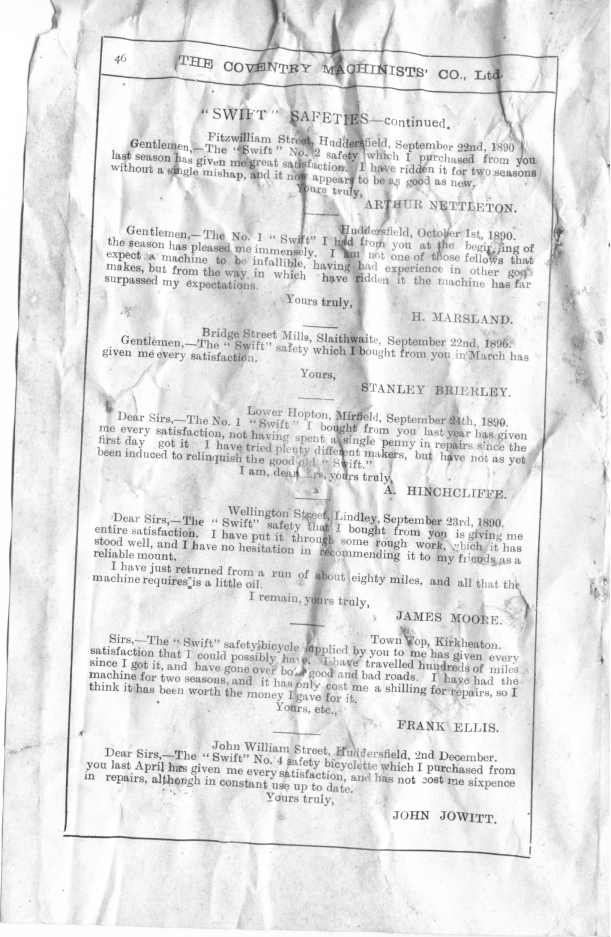 46
THE COVENTRY MACHINISTS' CO., Ltd.
"SWIFT" SAFETIES—continued.
Fitzwilliam Street, Huddersfield, September 22nd, 1890
Gentlemen,—The "Swift" No. 2 safety which I purchased from you
last season has given me great satisfaction. I have ridden it for two seasons
without a single mishap, and it now appears to be as good as new,
Yours truly,
ARTHUR NETTLETON.
Huddersfield, October 1st, 1890.
Gentlemen,—The No. 1 "Swift" I had from you at the beginning of
the season has pleased me immensely. I am not one of those fellows that
expect a machine to be infallible, having had experience in other good
makes, but from the way in which have ridden it the machine has far
surpassed my expectations.
Yours truly,
H. MARSLAND.
Bridge Street Mills, Slaithwaite, September 22nd, 1890.
Gentlemen,—The "Swift" safety which I bought from you in March has
given me every satisfaction.
Yours,
STANLEY BRIERLEY.
Lower Hopton, Mirfield, September 24th, 1890.
Dear Sirs,—The No. 1 "Swift" I bought from you last year has given
me every satisfaction, not having spent a single penny in repairs since the
first day got it I have tried plenty different makers, but have not as yet
been induced to relinquish the good old "Swift."
I am, dear Sirs, yours truly,
A. HINCHCLIFFE.
Wellington Street, Lindley, September 23rd, 1890.
Dear Sirs,—The "Swift" safety that I bought from you is giving me
entire satisfaction. I have put it through some rough work, which it has
stood well, and I have no hesitation in recommending it to my friends as a
reliable mount.
I have just returned from a run of about eighty miles, and all that the
machine requires is a little oil.
I remain, yours truly,
JAMES MOORE.
Town Top, Kirkheaton.
Sirs,—The "Swift" safety bicycle supplied by you to me has given every
satisfaction that I could possibly have. I have travelled hundreds of miles
since I got it, and have gone over both good and bad roads. I have had the
machine for two seasons, and it has only cost me a shilling for repairs, so I
think it has been worth the money I gave for it.
Yours, etc.,
FRANK ELLIS.
John William Street, Huddersfield, 2nd December.
Dear Sirs,—The "Swift" No. 4 safety bicyclette which I purchased from
you last April has given me every satisfaction, and has not cost me sixpence
in repairs, although in constant use up to date.
Yours truly,
JOHN JOWITT.